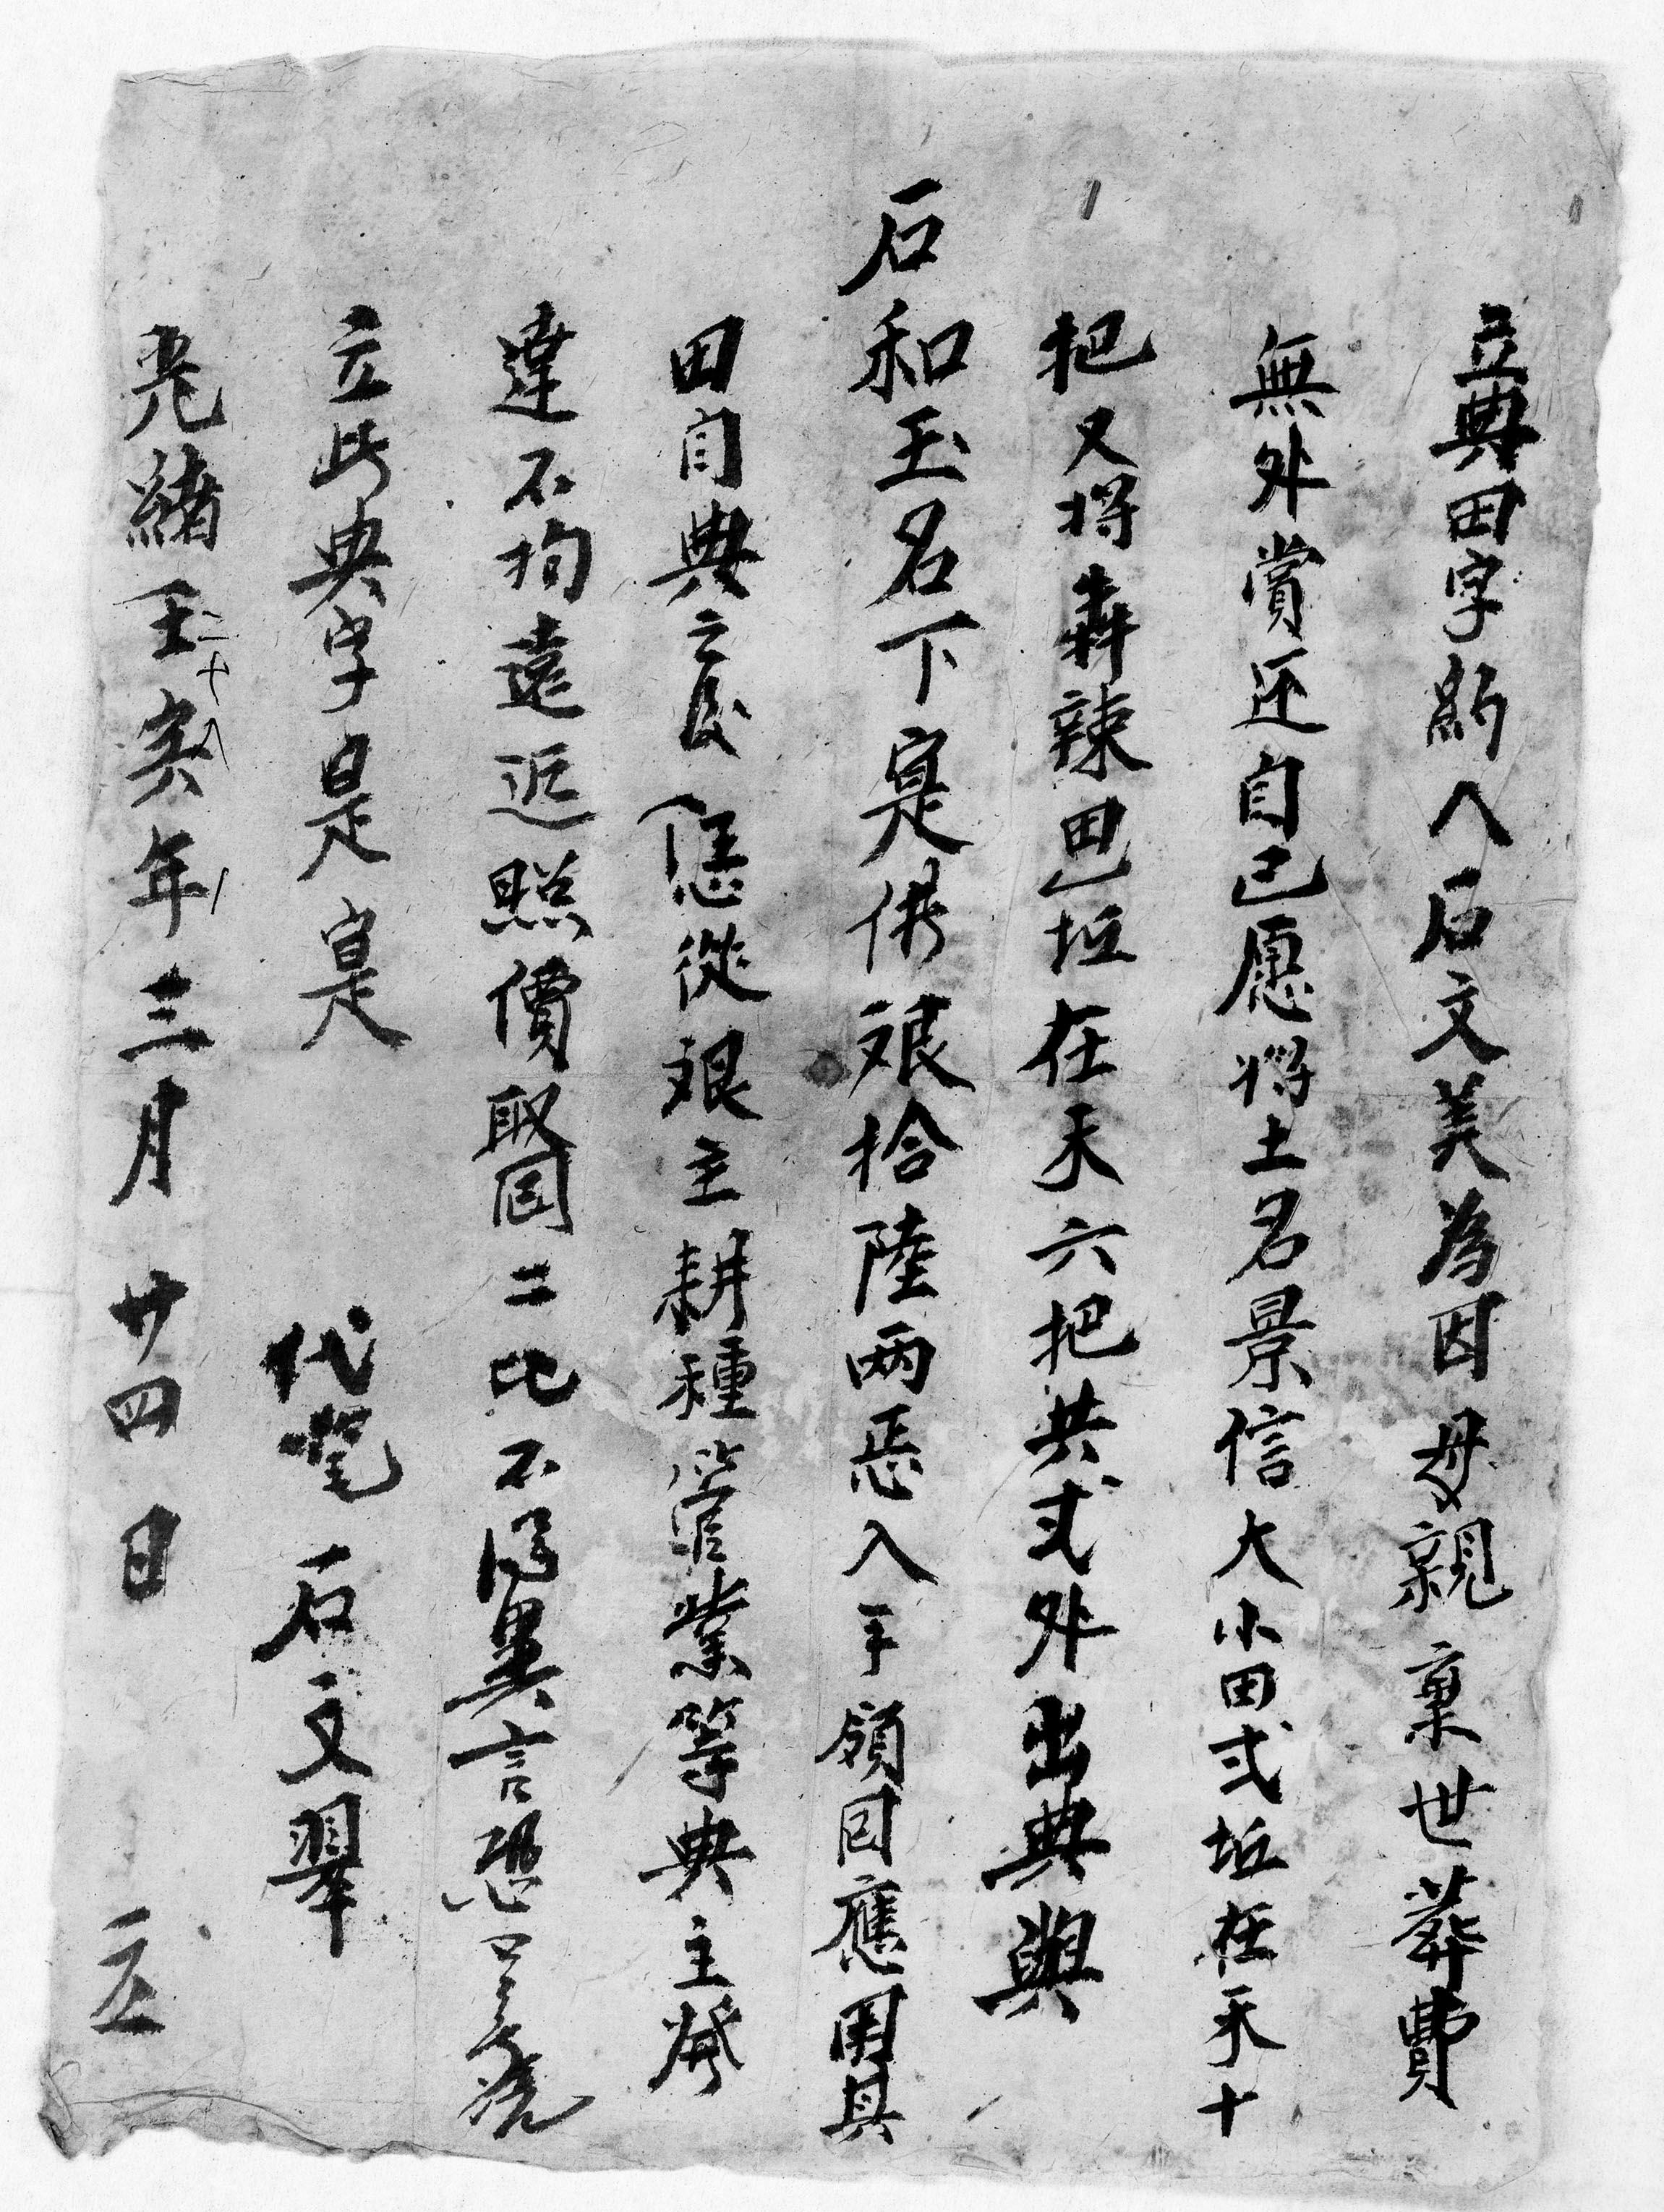 立典田字約人石文美為因母親棄世葬費
無外賞还自己愿將土名景信大小田弍坵在禾十
把又將犇辣田一坵在禾六把共弍外出典與
石和玉名下寔借艰拾陸両恶入手領回應用其
田自典之後恁從艰主耕種管業等典主
違不拘遠近照價取囬二比不得異言恐口無凴
立此典字是寔
代筆 石文翠
光緒壬二十八寅年三月廿四日 立